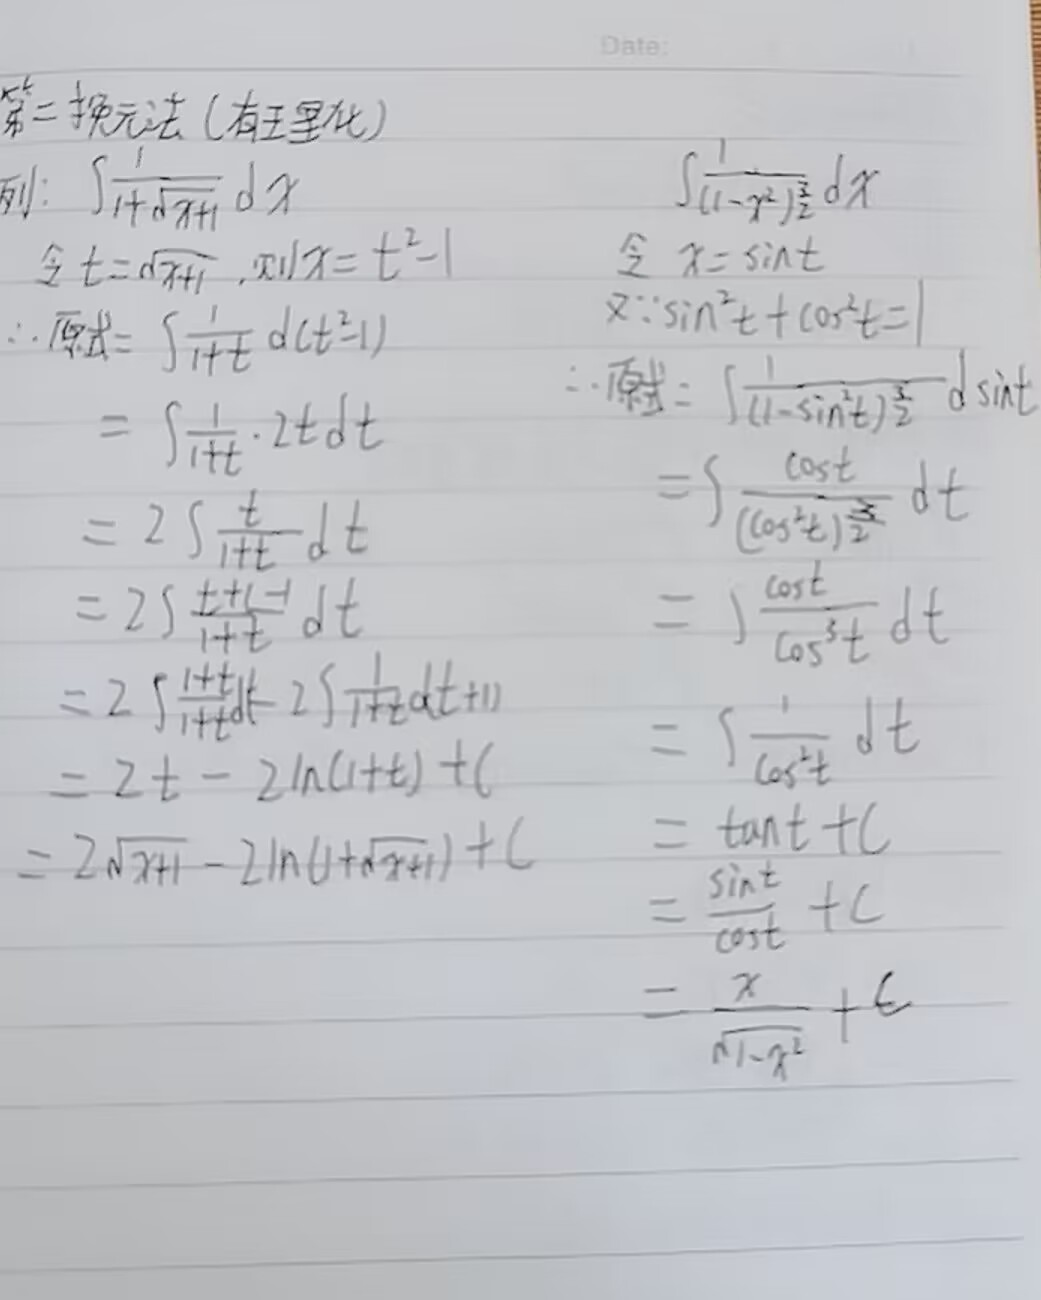 Date:
第二换元法(有理化)
例: ∫ 1/(1+√(x+1)) dx
令 t=√(x+1) ,则 x= t²-1
∴原式= ∫ 1/(1+t) d(t²-1)
= ∫ 1/(1+t) · 2t dt
= 2∫ t/(1+t) dt
= 2∫ (t+1-1)/(1+t) dt
= 2∫ (1+t)/(1+t) dt - 2∫ 1/(1+t) d(t+1)
= 2t - 2ln(1+t) +C
= 2√(x+1) - 2ln(1+√(x+1)) +C
∫ 1/(1-x²)^(3/2) dx
令 x=sint
又∵sin²t+cos²t=1
∴原式= ∫ 1/(1-sin²t)^(3/2) dsint
=∫ cost/(cos²t)^(3/2) dt
= ∫ cost/cos³t dt
= ∫ 1/cos²t dt
= tant+C
= sint/cost +C
= x/√(1-x²) +C